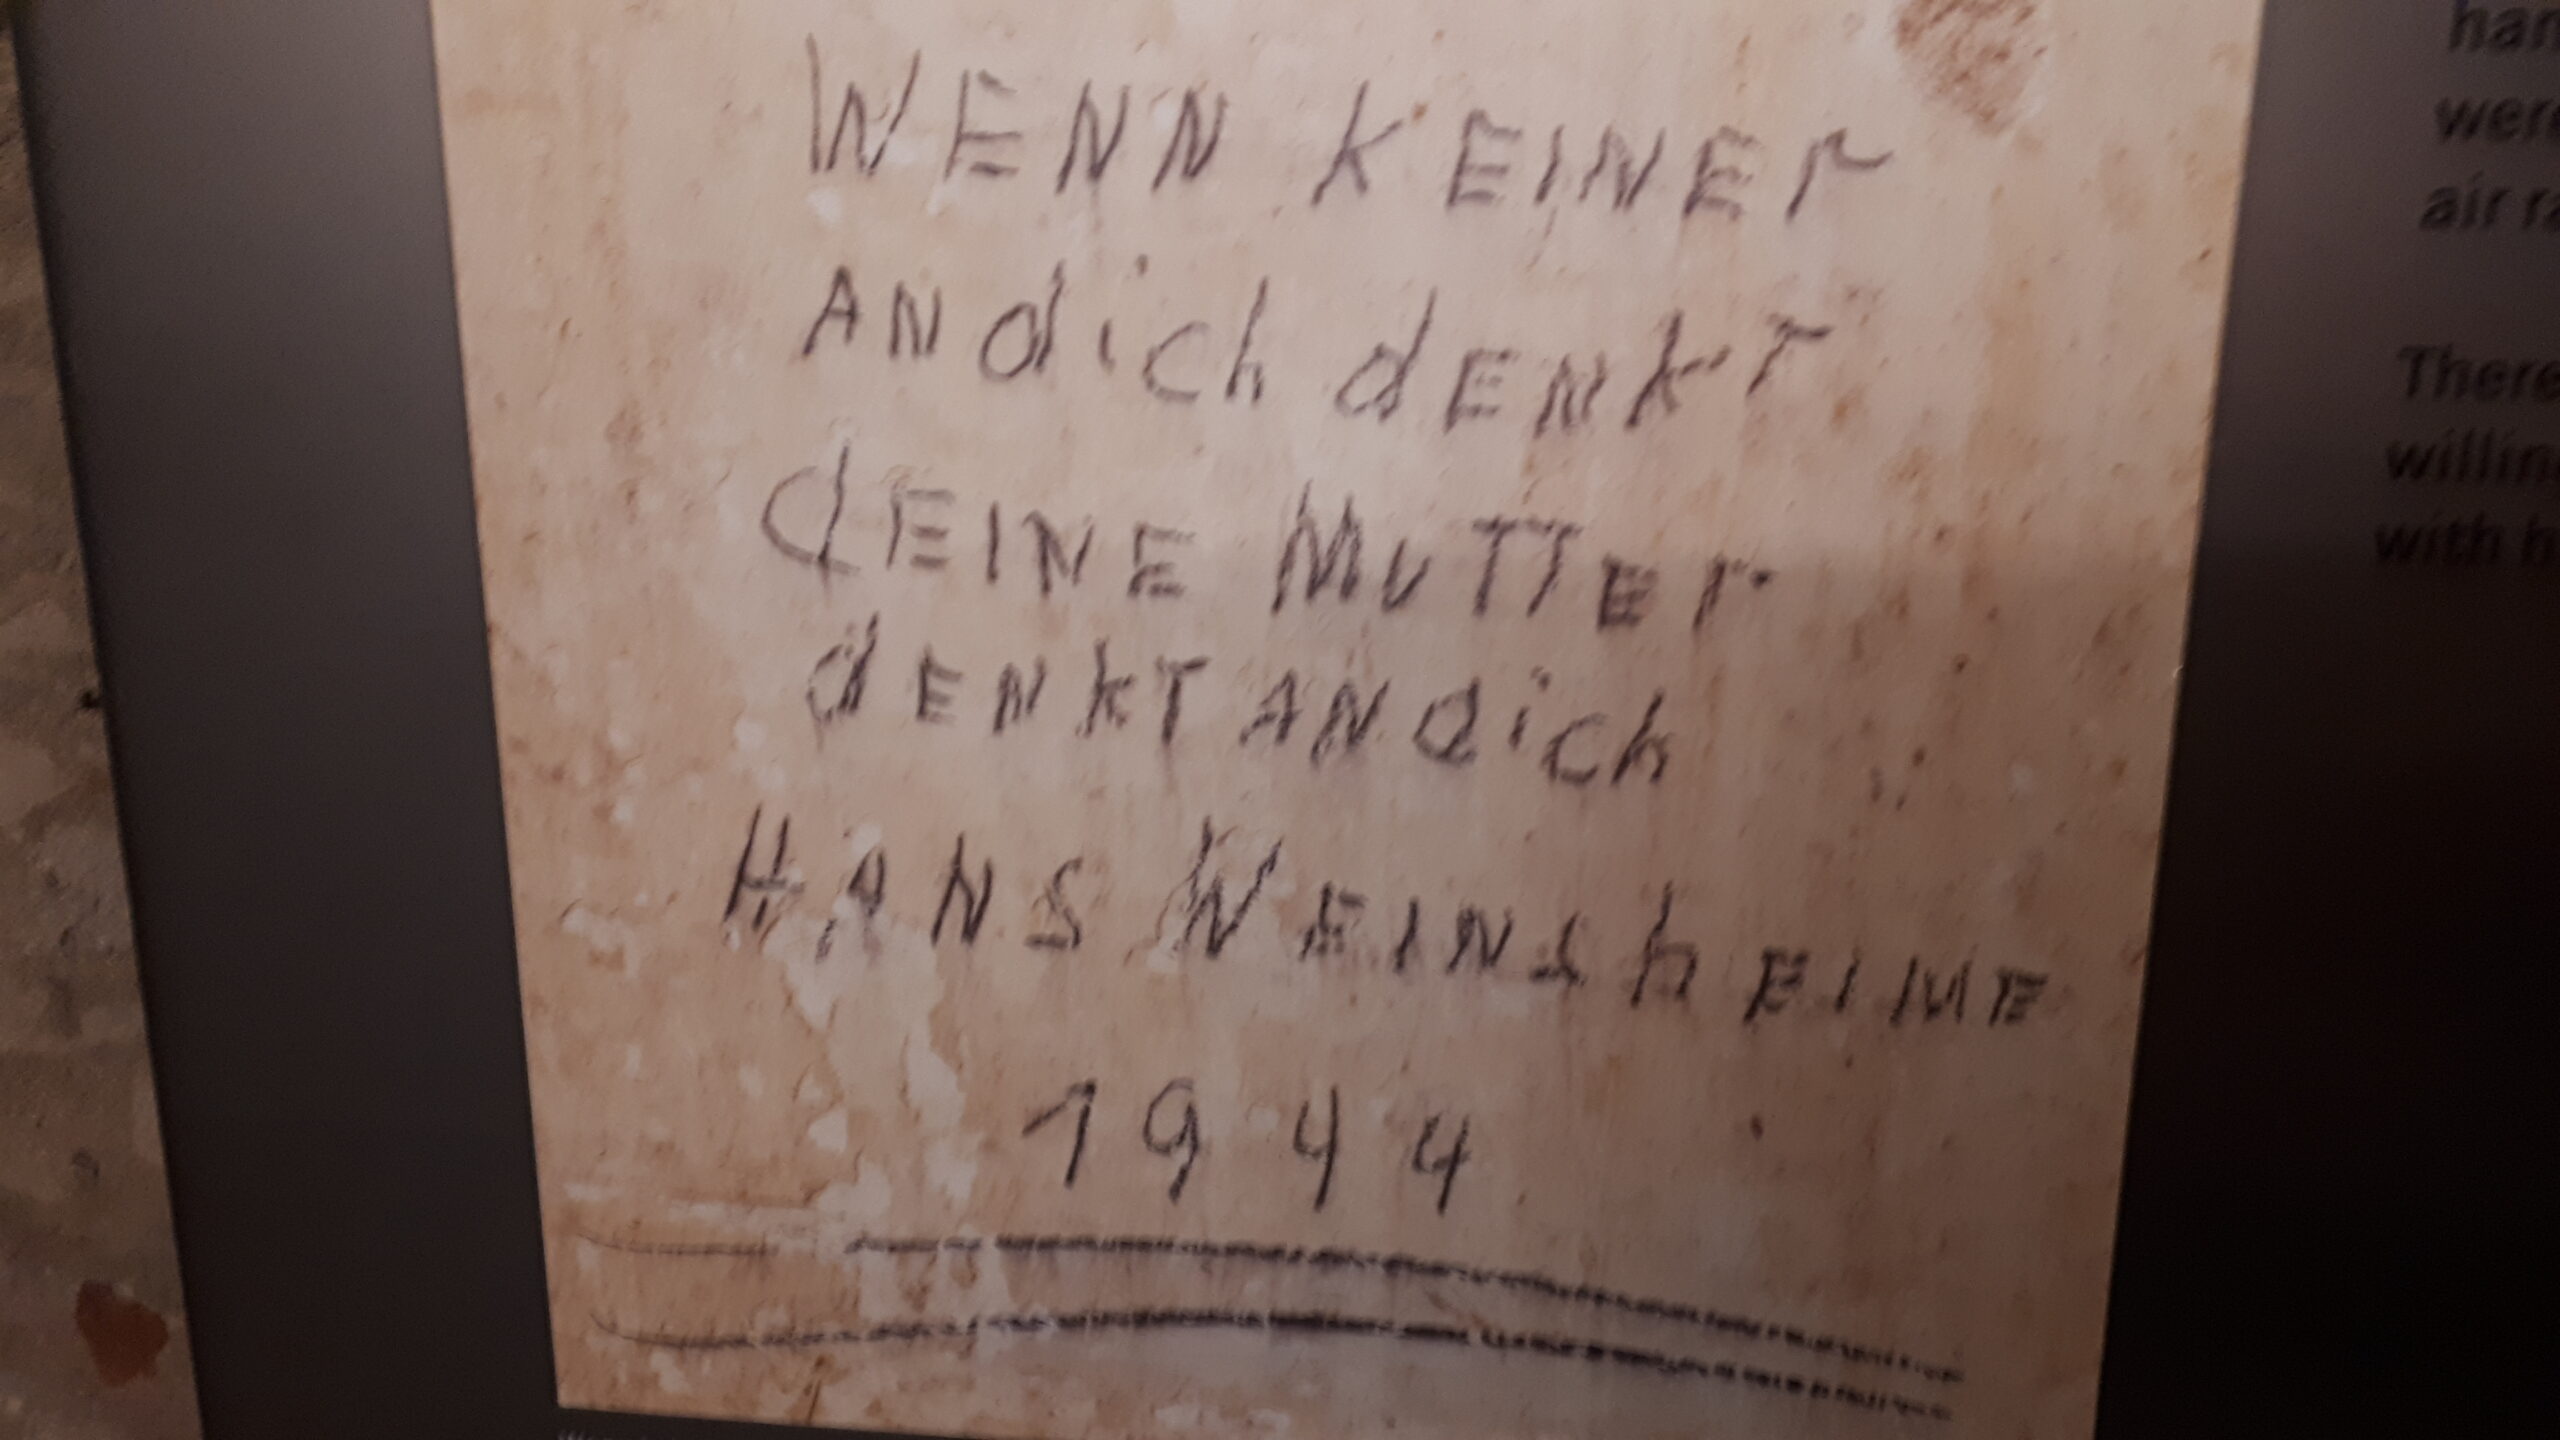 WENN KEINEr
AN dich dENKT
dEINE MUTTEr
dENKT AN dich
HANS WEINShEIME
1944
air
There
with